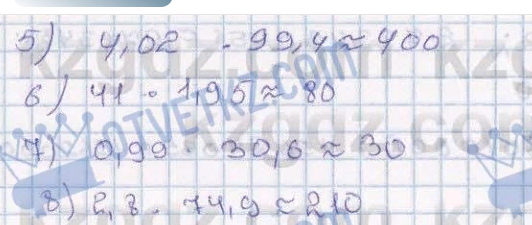 5) 4,02 · 99,4 ≈ 400
6) 41 · 1,95 ≈ 80
7) 0,99 · 30,6 ≈ 30
8) 2,8 · 74,9 ≈ 210
kzgdz.com
OTVETKZ.COM